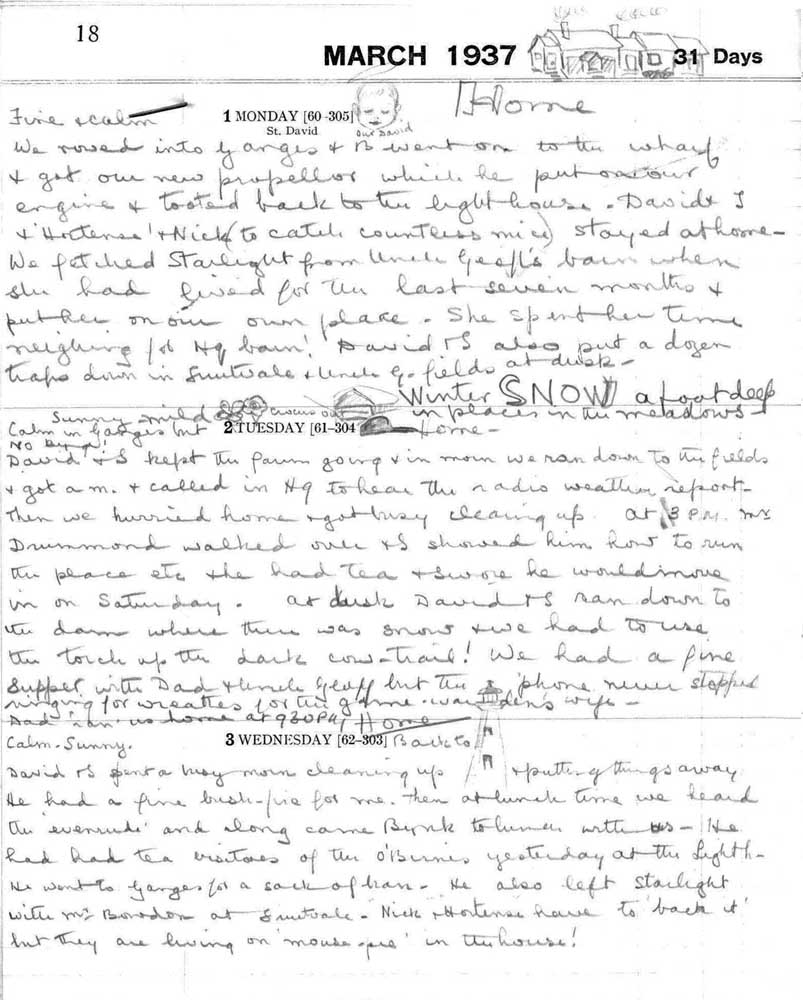 18
MARCH 1937 31 Days
Home
Fine & calm
1 MONDAY [60-305]
St. David
Our David
We rowed into Ganges & B went on to the wharf
& got our new propellor which he put on our
engine & tooted back to the lighthouse. David & I
& 'Hortense' & Nick (to catch countless mice) stayed at home –
We fetched Starlight from Uncle Geoff's barn where
she had lived for the last seven months &
put her on our own place. She spent her time
neighing for Hq barn! David & I also put a dozen
traps down in & Uncle G. fields at dusk –
Winter SNOW a foot deep
in places in the meadows –
Sunny mild crocus out
Calm in Ganges but
No
2 TUESDAY [61-304
Home –
David & I kept the farm going & in morn we ran down to the fields
& got a m. & called in Hq to hear the radio weather report –
Then we hurried home & got busy clearing up. At 3 P.M. Mr
Drummond walked over & I showed him how to run
the place etc & he had tea & swore he would move
in on Saturday. At dusk David & I ran down to
the dam where there was snow & we had to use
the torch up the dark cow-trail! We had a fine
supper with Dad & Uncle Geoff but the 'phone never stopped
ringing for wreathes for the game-warden's wife –
Dad 'ran' us home at 930PM
Home
Calm. Sunny.
3 WEDNESDAY [62-303]
Back to
David & I spent a busy morn cleaning up & putting things away
He had a fine bush-fire for me. Then at lunch time we heard
the 'evenrude' and along came to lunch with us – He
had had tea visitors of the O'Birnes yesterday at the Lighth –
He went to Ganges for a sack of bran – He also left Starlight
with Mr Bowden at – Nick & Hortense have to 'back it'
but they are living on 'mouse-pie' in the house!